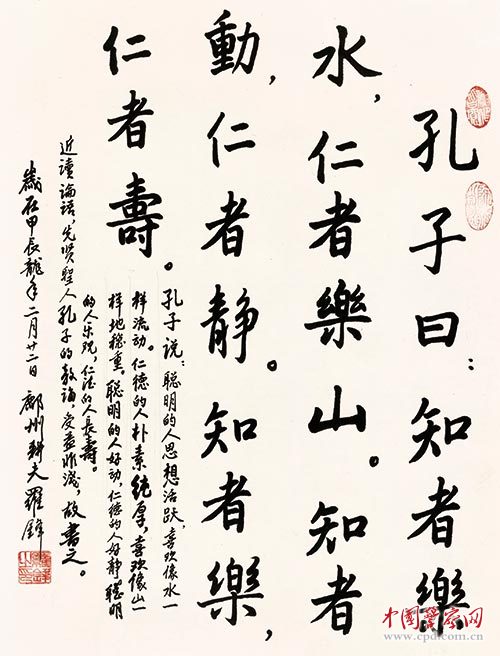 孔子曰：知者樂
水，仁者樂山。知者
動，仁者静。知者樂，
仁者壽。
孔子说：聪明的人思想活跃，喜欢像水一
样流动。仁德的人朴素纯厚，喜欢像山一
样地稳重。聪明的人好动，仁德的人好静。聪明
的人乐观，仁德的人長壽。
近读论语，先贤聖人孔子的教诲，受益非浅，故書之。
歲在甲辰龍年二月廿二日 鄜州耕夫羅鋒
中国警察网
www.cpd.com.cn